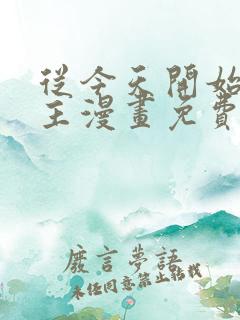 從今天開始
王漫畫免費
廢言夢語
未經同意禁止轉載